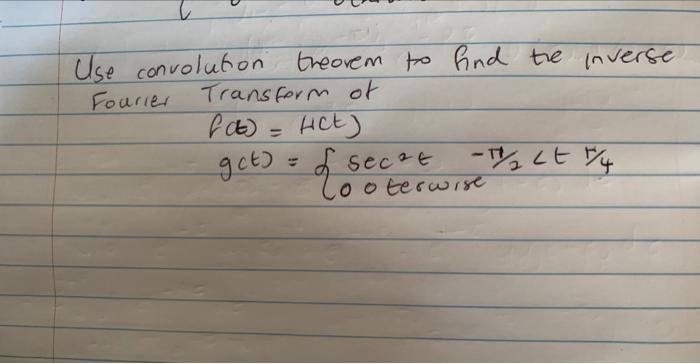 Use convolution theorem to find the inverse
Fourier Transform of
f(t) = H(t)
g(t) = { sec²t -π/2 < t π/4
{ 0 oterwise